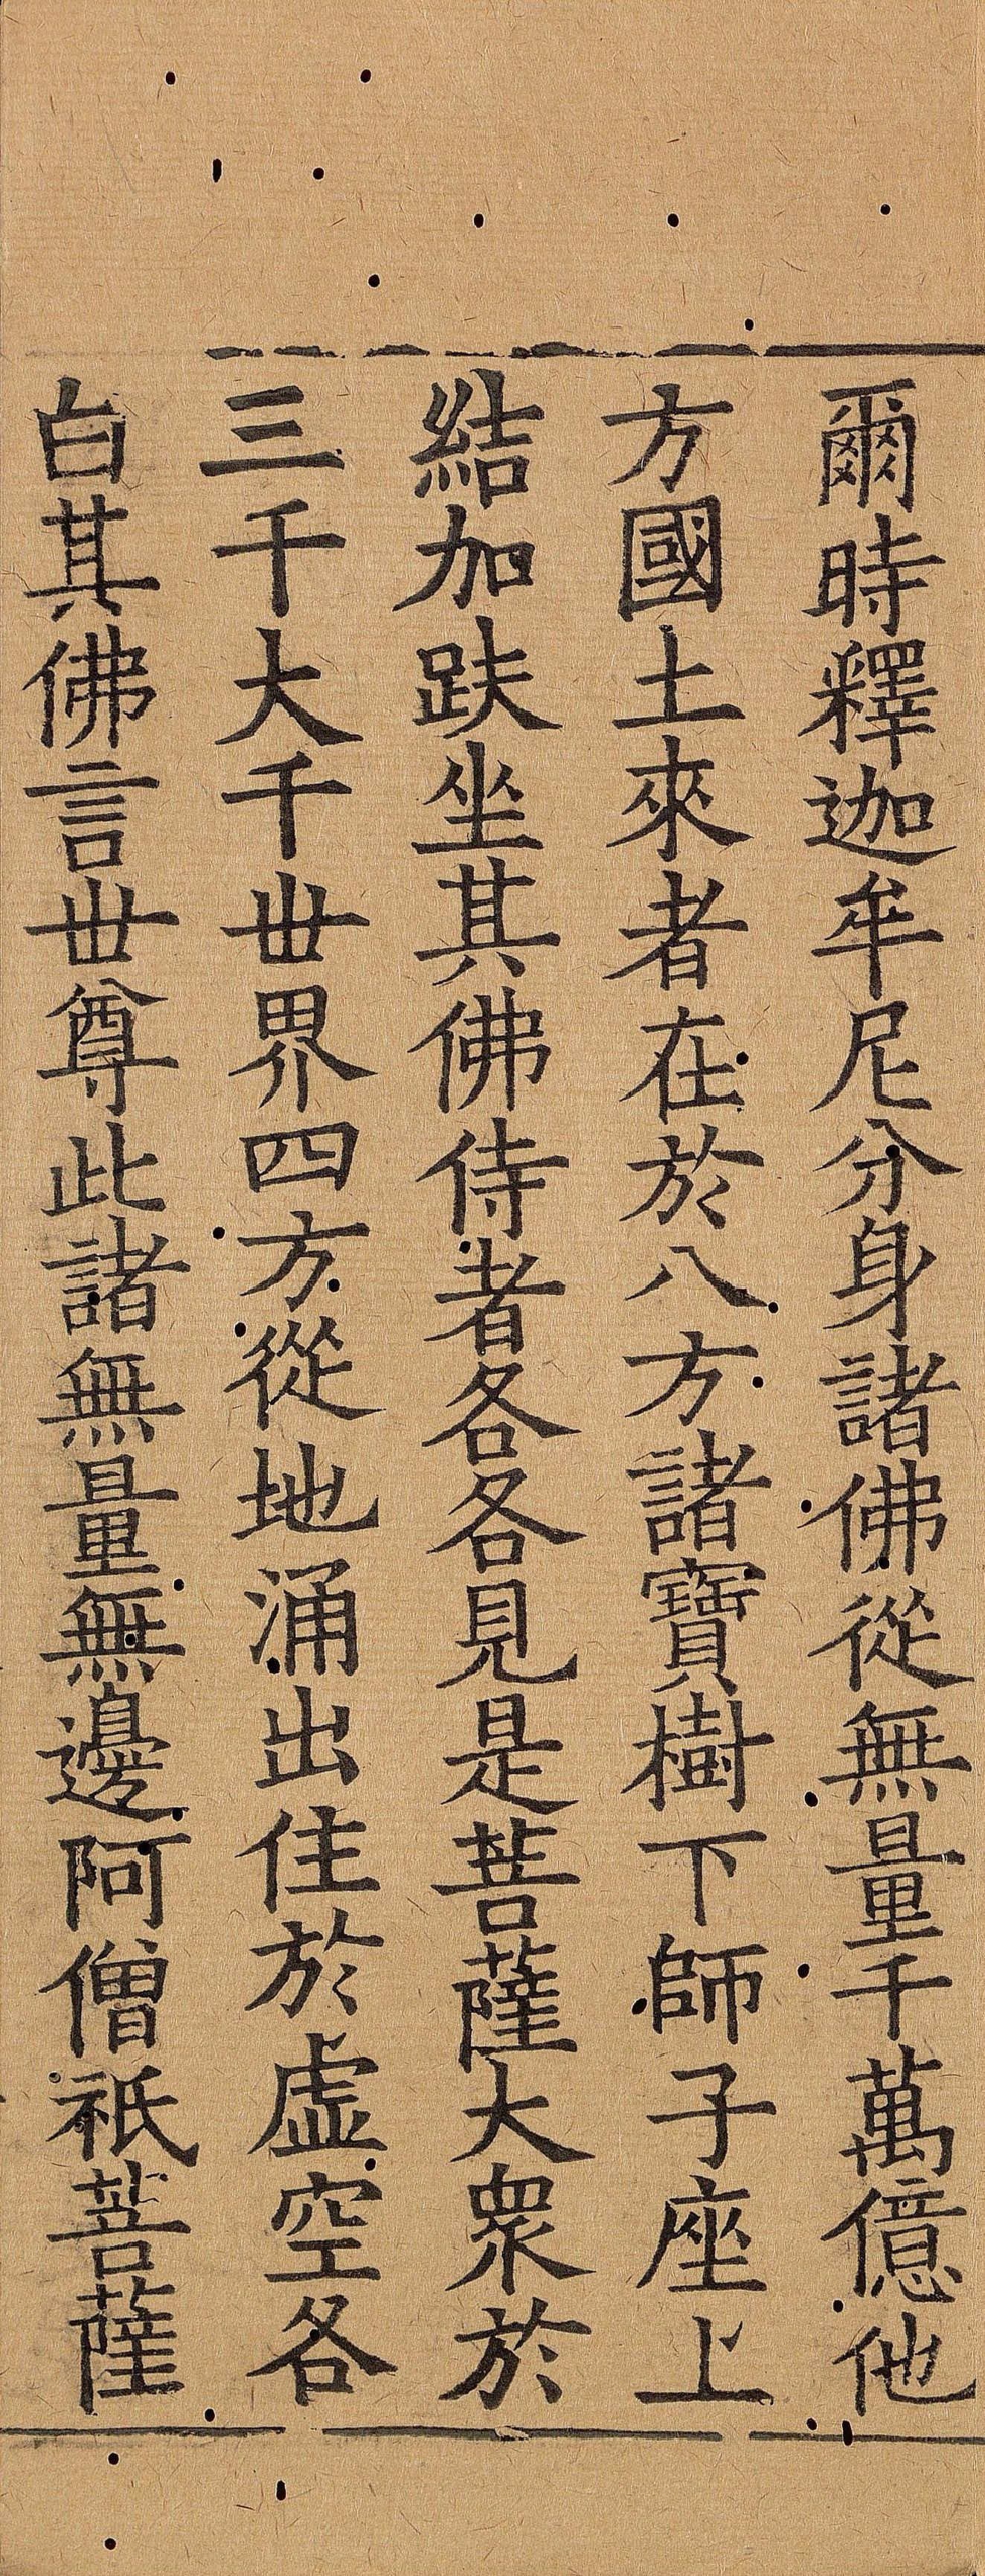 爾時釋迦牟尼分身諸佛從無量千萬億他
方國土來者在於八方諸寶樹下師子座上
結加趺坐其佛侍者各各見是菩薩大衆於
三千大千世界四方從地涌出住於虛空各
白其佛言世尊此諸無量無邊阿僧祇菩薩